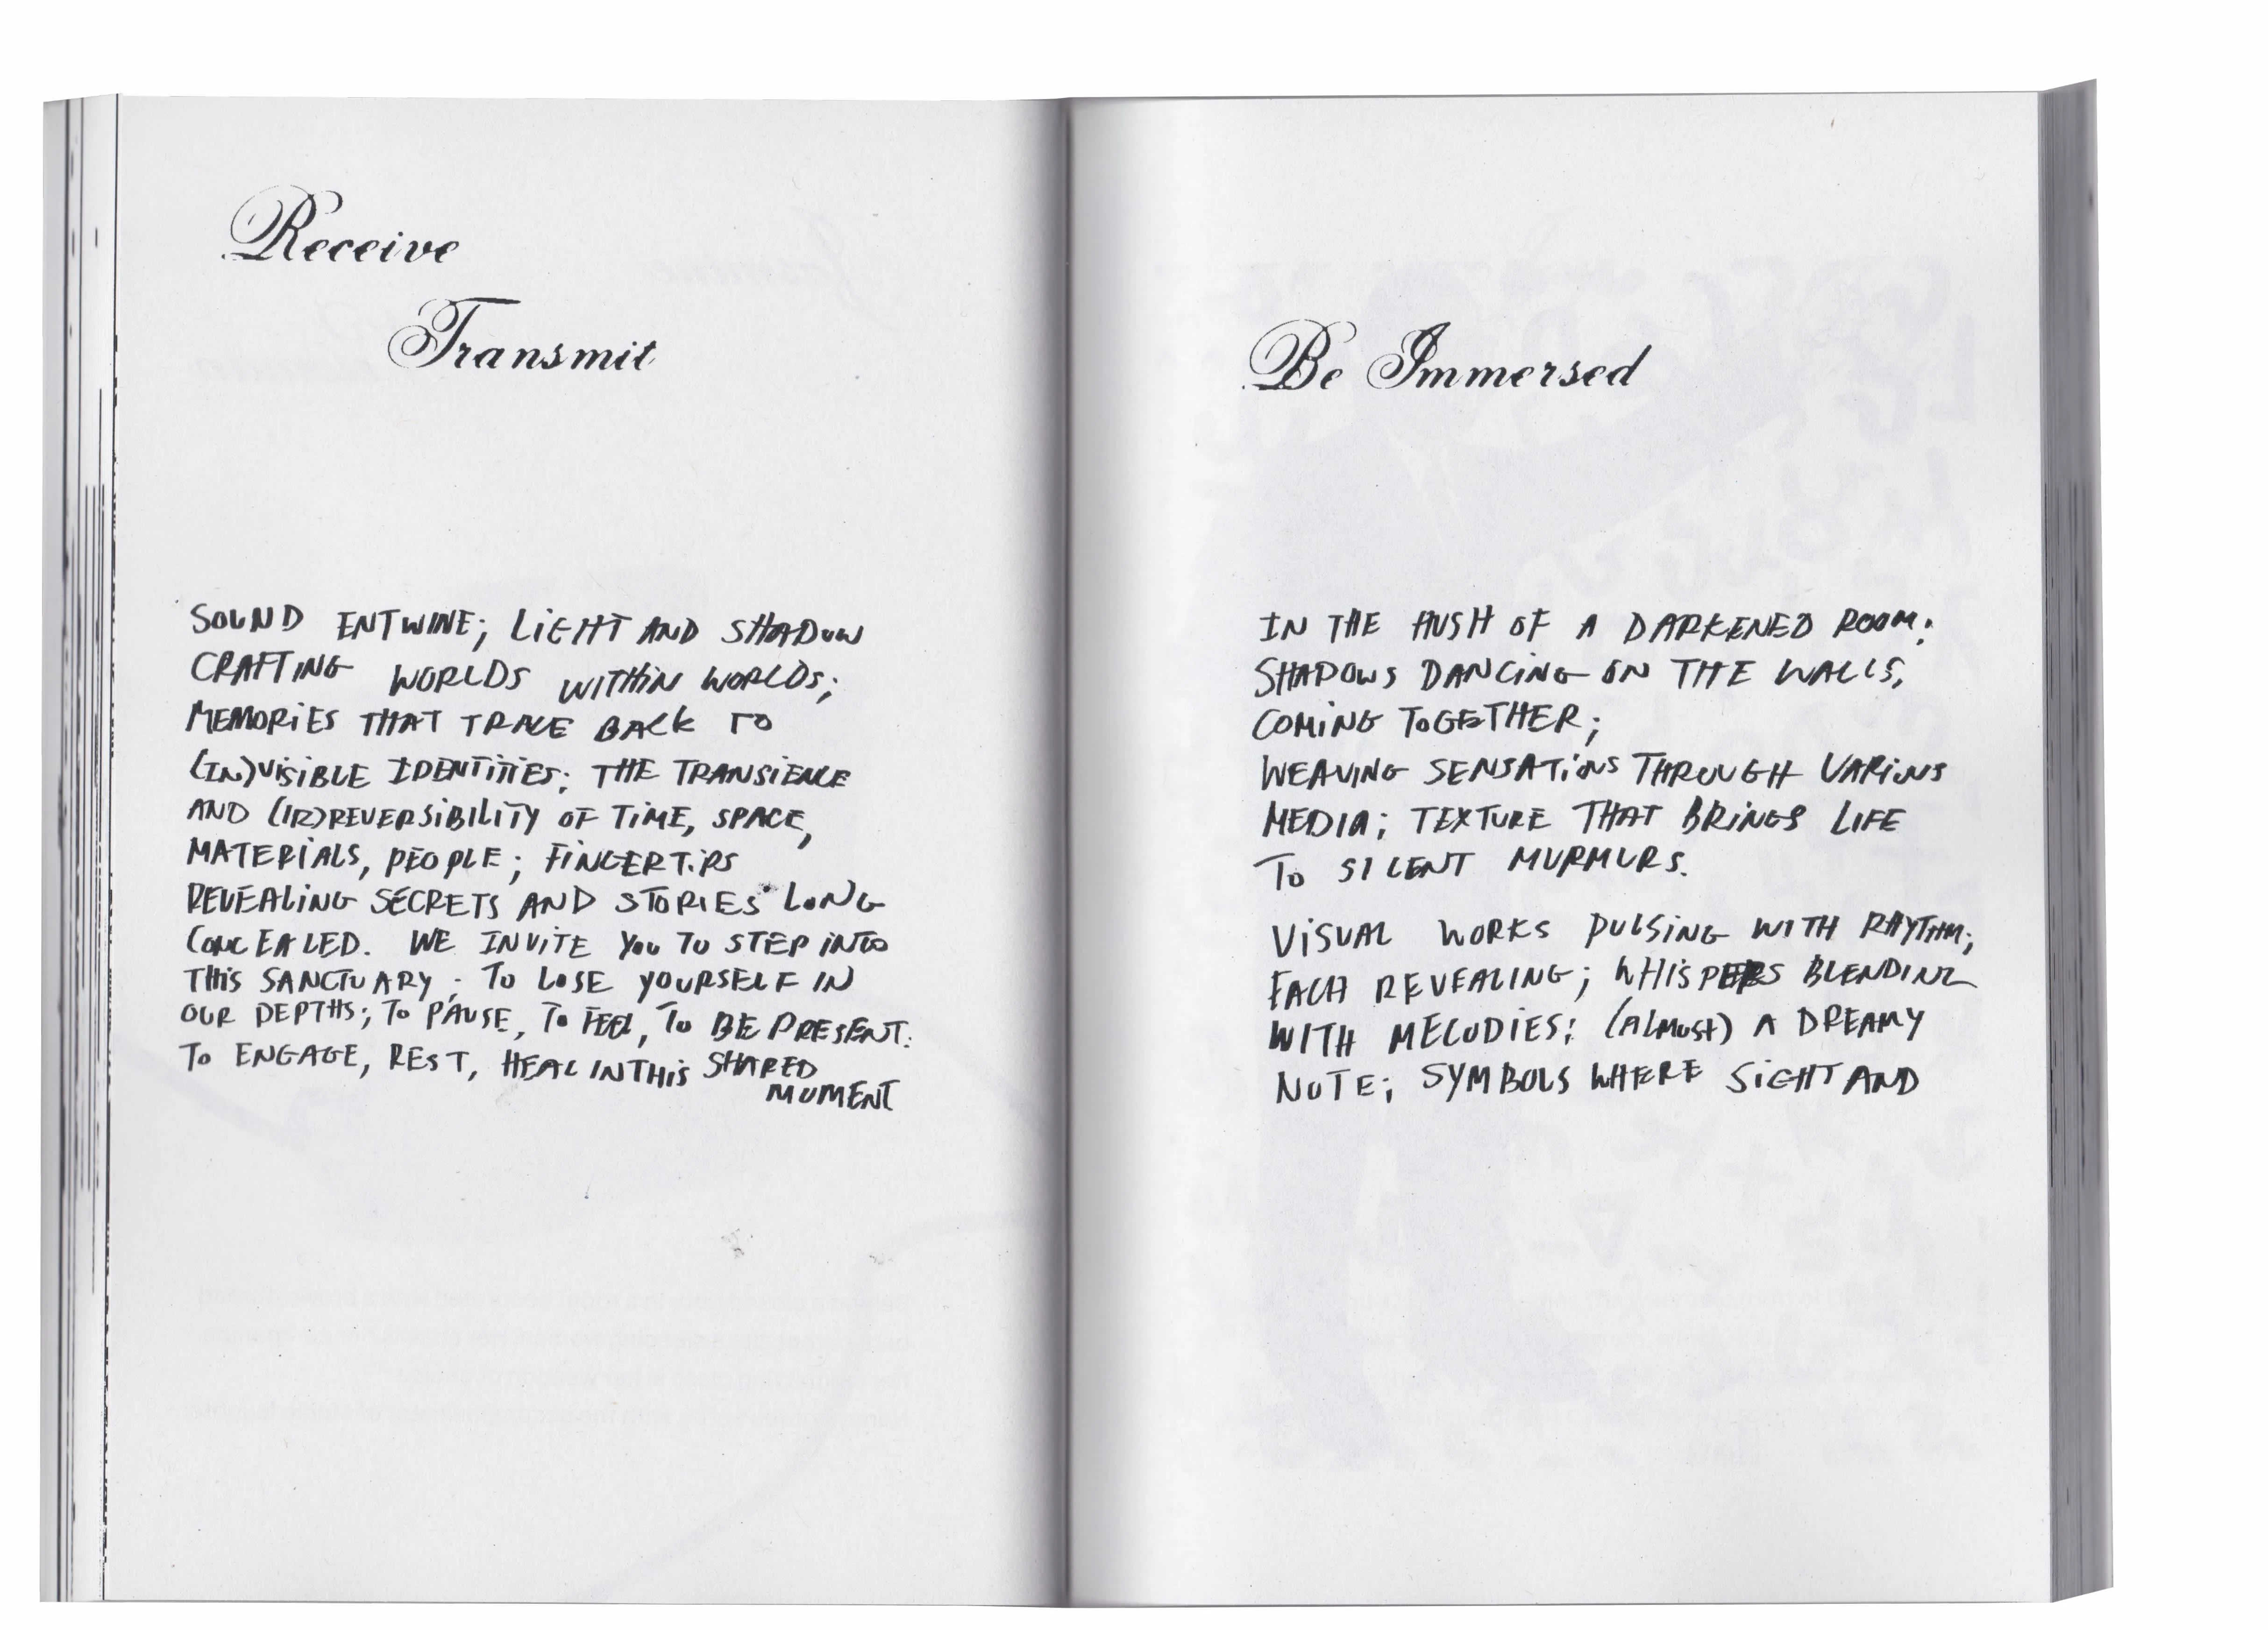 Receive
Transmit
SOUND ENTWINE; LIGHT AND SHADOW
CRAFTING WORLDS WITHIN WORLDS;
MEMORIES THAT TRACE BACK TO
(IN)VISIBLE IDENTITIES; THE TRANSIENCE
AND (IR)REVERSIBILITY OF TIME, SPACE,
MATERIALS, PEOPLE; FINGERTIPS
REVEALING SECRETS AND STORIES LONG
CONCEALED. WE INVITE YOU TO STEP INTO
THIS SANCTUARY; TO LOSE YOURSELF IN
OUR DEPTHS; TO PAUSE, TO FEEL, TO BE PRESENT.
TO ENGAGE, REST, HEAL IN THIS SHARED
MOMENT
Be Immersed
IN THE HUSH OF A DARKENED ROOM;
SHADOWS DANCING ON THE WALLS,
COMING TOGETHER;
WEAVING SENSATIONS THROUGH VARIOUS
MEDIA; TEXTURE THAT BRINGS LIFE
TO SILENT MURMURS.
VISUAL WORKS PULSING WITH RHYTHM;
EACH REVEALING; WHISPERS BLENDING
WITH MELODIES; (ALMOST) A DREAMY
NOTE; SYMBOLS WHERE SIGHT AND